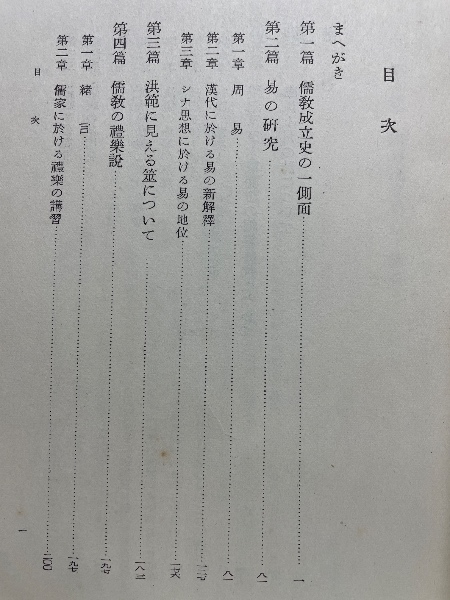 目次
まへがき
第一篇 儒教成立史の一側面……一
第二篇 易の研究……八一
第一章 周易……八一
第二章 漢代に於ける易の新解釋
第三章 シナ思想に於ける易の地位
第三篇 洪範に見える筮について
第四篇 儒教の禮樂説……一九七
第一章 緒言……一九七
第二章 儒家に於ける禮樂の講習……二〇〇
目次
一